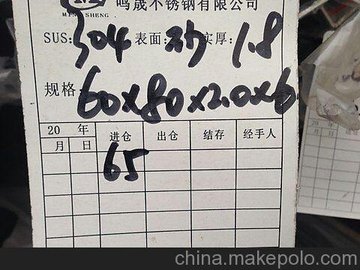 鸣晟不锈钢有限公司
MING SHENG
SUS: 304 表面: 实厚: 1.8
规格 60×80×2.0×6
20 年 进仓 出仓 结存 经手人
月 日 65
china.makepolo.com